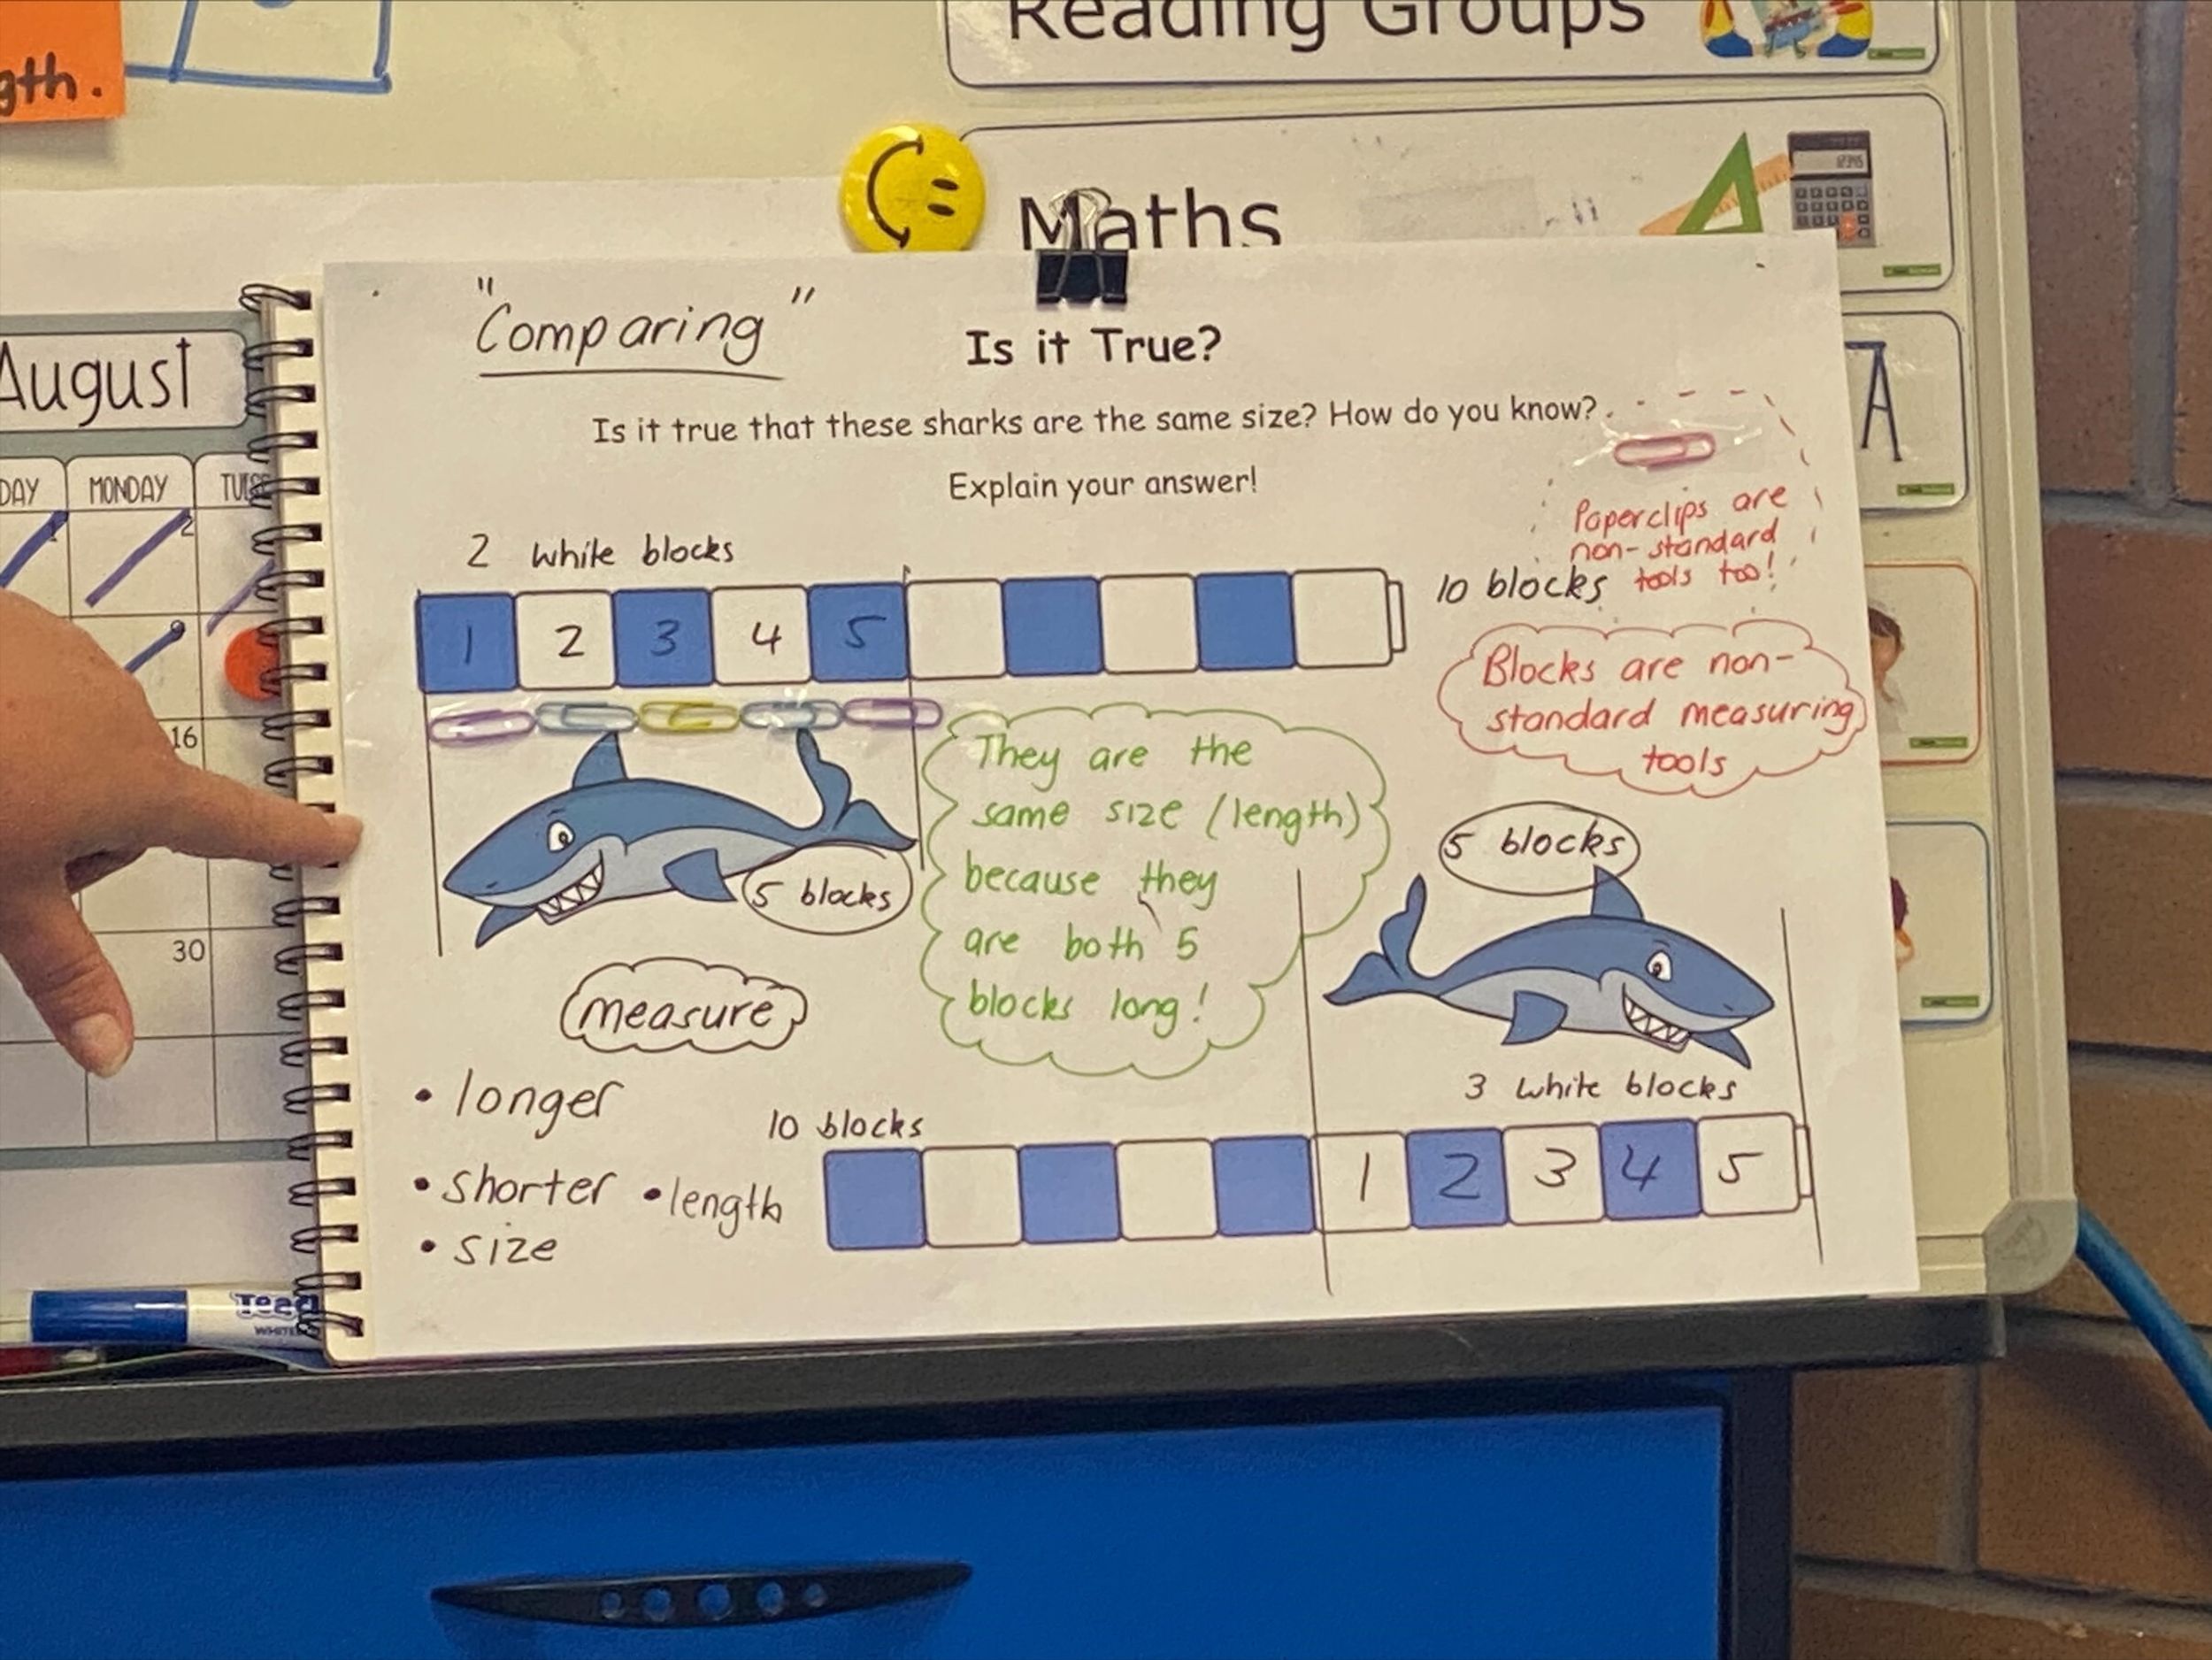 Reading Groups
gth.
Maths
"Comparing"
Is it True?
Is it true that these sharks are the same size? How do you know?
Explain your answer!
August
DAY MONDAY
2
9
16
30
2 white blocks
Paperclips are
non-standard
tools too!
10 blocks
1 2 3 4 5
Blocks are non-
standard measuring
tools
They are the
same size (length)
because they
are both 5
blocks long!
5 blocks
5 blocks
measure
• longer
• shorter • length
• size
3 white blocks
10 blocks
1 2 3 4 5
A